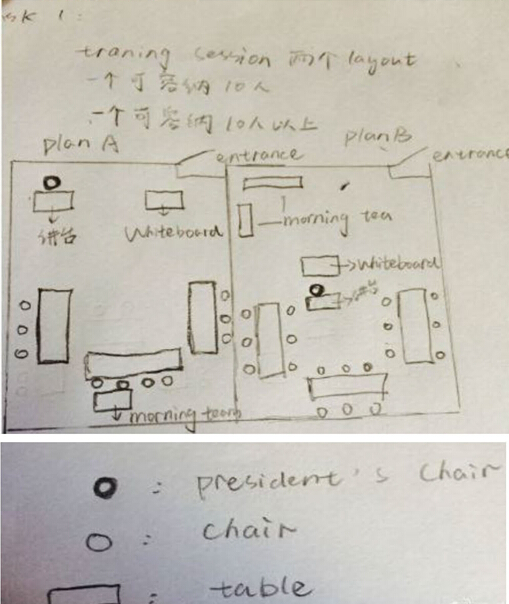 sk 1:
traning session 两个 layout
一个可容纳10人
一个可容纳10人以上
plan A
plan B
entrance
entrance
讲台
Whiteboard
morning tea
Whiteboard
讲台
morning team
: president's chair
: chair
: table